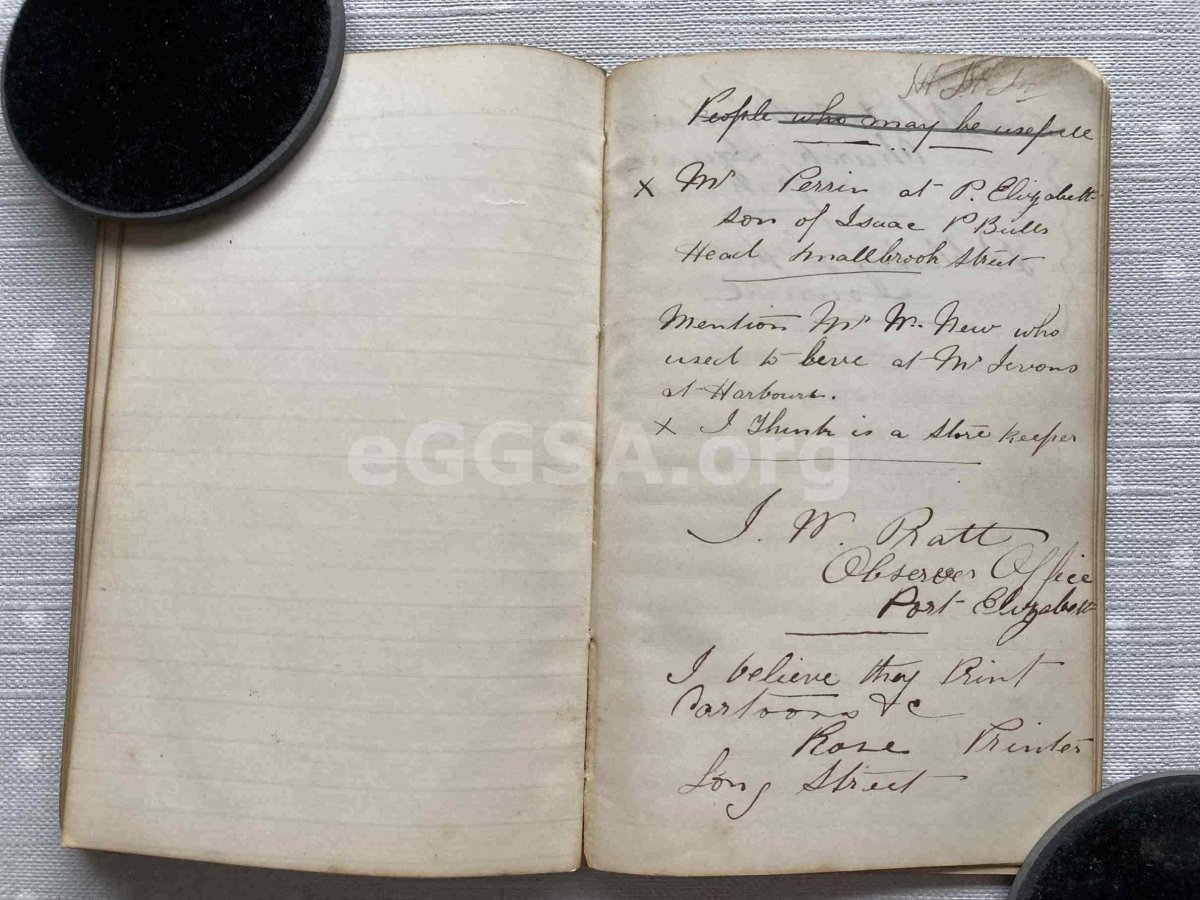 People who may be usefull
x Mr Perrin at P. Elizabeth
son of Isaac P Bulls
Head Smallbrook Street
Mention Mr Wm New who
used to at Mr Jevons
at Harbourn.
x I Think is a Store Keeper
eGGSA.org
J. W. Pratt
Observer Office
Port Elizabeth
I believe they Print
Cartoons &c
Rose Printer
Long Street